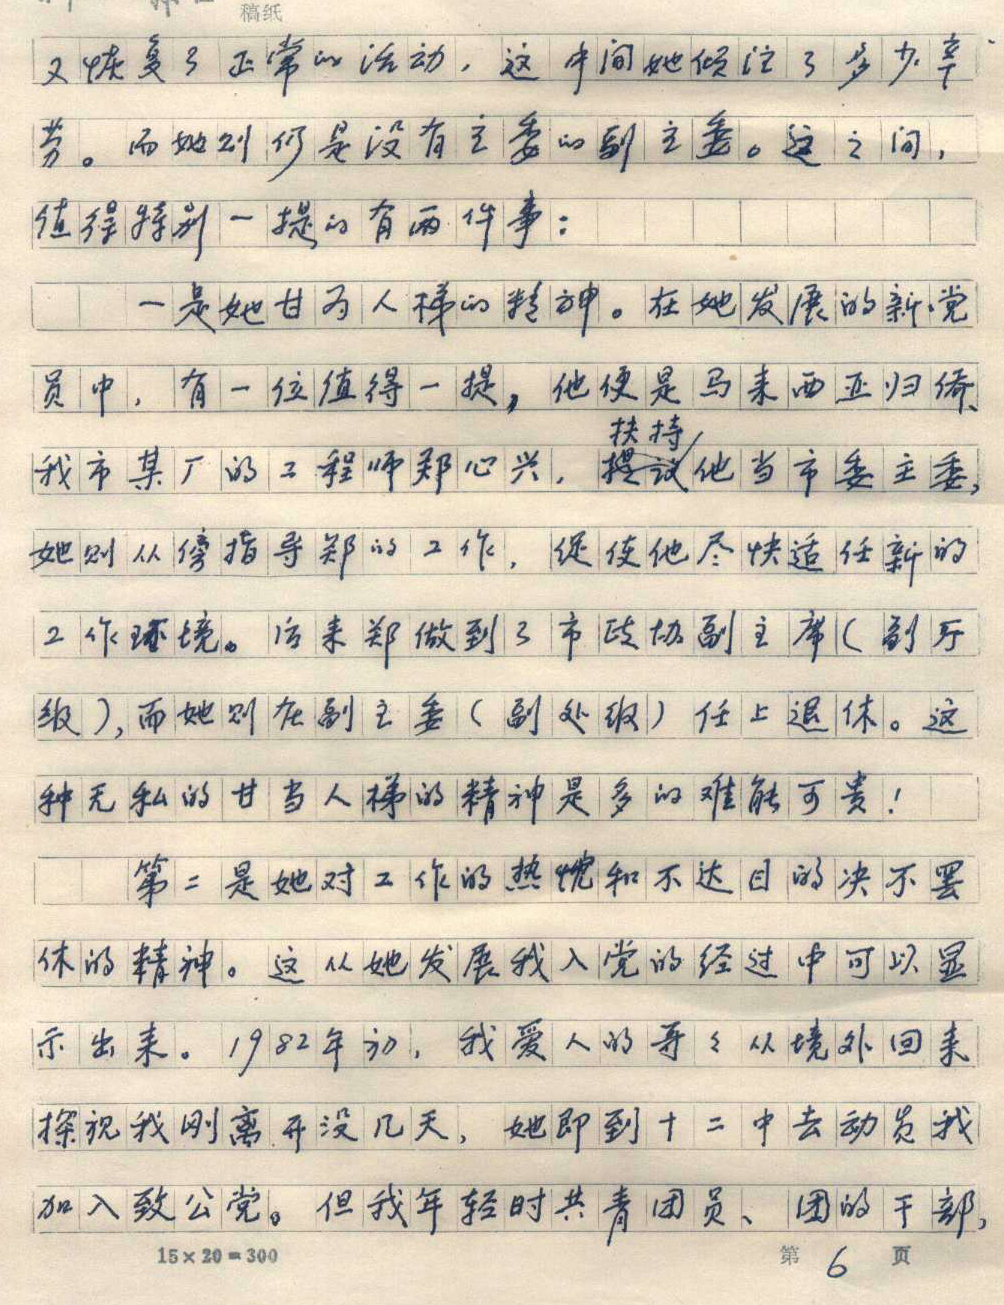 稿纸
又恢复了正常的活动，这中间她倾注了多少辛
劳。而她则仍是没有主委的副主委。这之间，
值得特别一提的有两件事：
一是她甘为人梯的精神。在她发展的新党
员中，有一位值得一提，他便是马来西亚归侨、
扶持
我市某厂的工程师郑心兴，提议他当市委主委，
她则从傍指导郑的工作，促使他尽快适任新的
工作环境。后来郑做到了市政协副主席（副厅
级），而她则在副主委（副处级）任上退休。这
种无私的甘当人梯的精神是多的难能可贵！
第二是她对工作的热忱和不达目的决不罢
休的精神。这从她发展我入党的经过中可以显
示出来。1982年初，我爱人的哥々从境外回来
探视我刚离开没几天，她即到十二中去动员我
加入致公党。但我年轻时共青团员、团的干部，
15×20=300
第6页